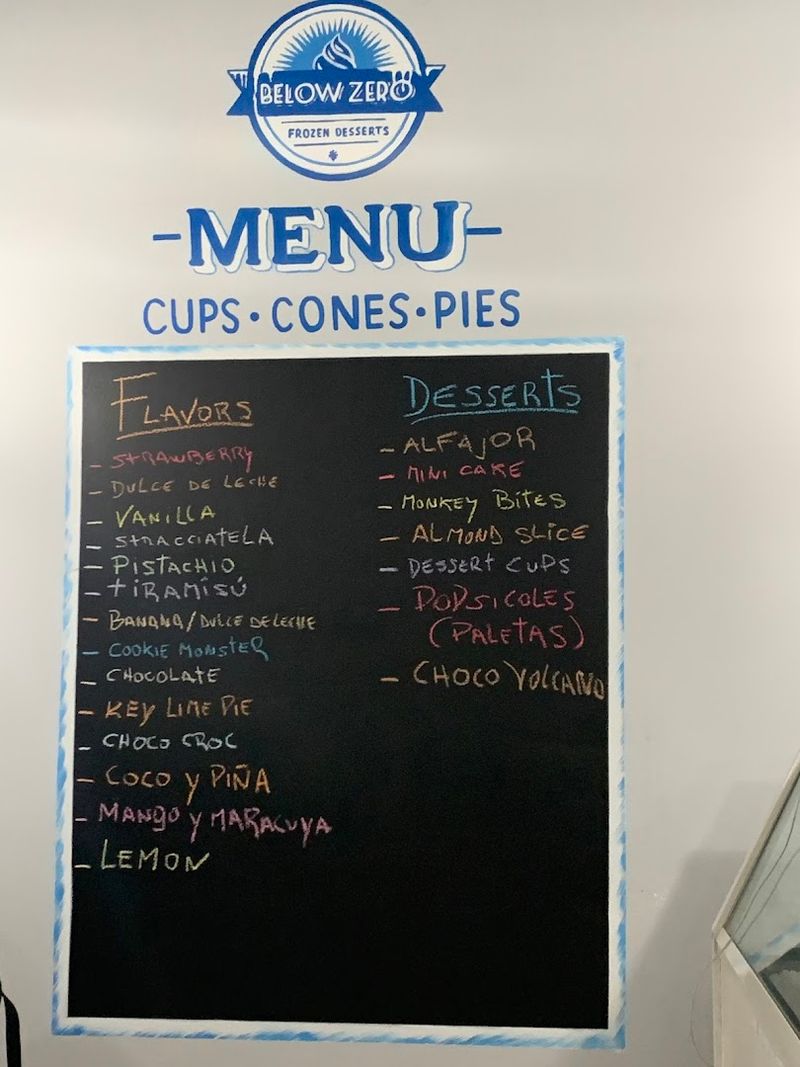 BELOW ZERO
FROZEN DESSERTS
-MENU-
CUPS • CONES • PIES
FLAVORS
- STRAWBERRY
- DULCE DE LECHE
- VANILLA
- STRACCIATELA
- PISTACHIO
- TIRAMISÚ
- BANANA/DULCE DE LECHE
- COOKIE MONSTER
- CHOCOLATE
- KEY LIME PIE
- CHOCO CROC
- COCO Y PIÑA
- MANGO Y MARACUYA
- LEMON
DESSERTS
- ALFAJOR
- MINI CAKE
- MONKEY BITES
- ALMOND SLICE
- DESSERT CUPS
- POPSICOLES
(PALETAS)
- CHOCO VOLCANO